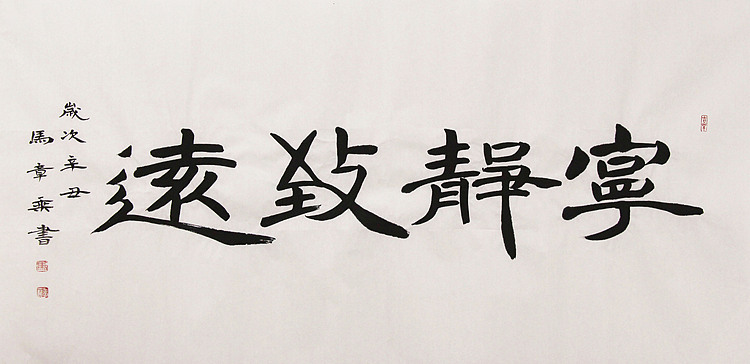 寧靜致遠
歲次辛丑
馬章乘書